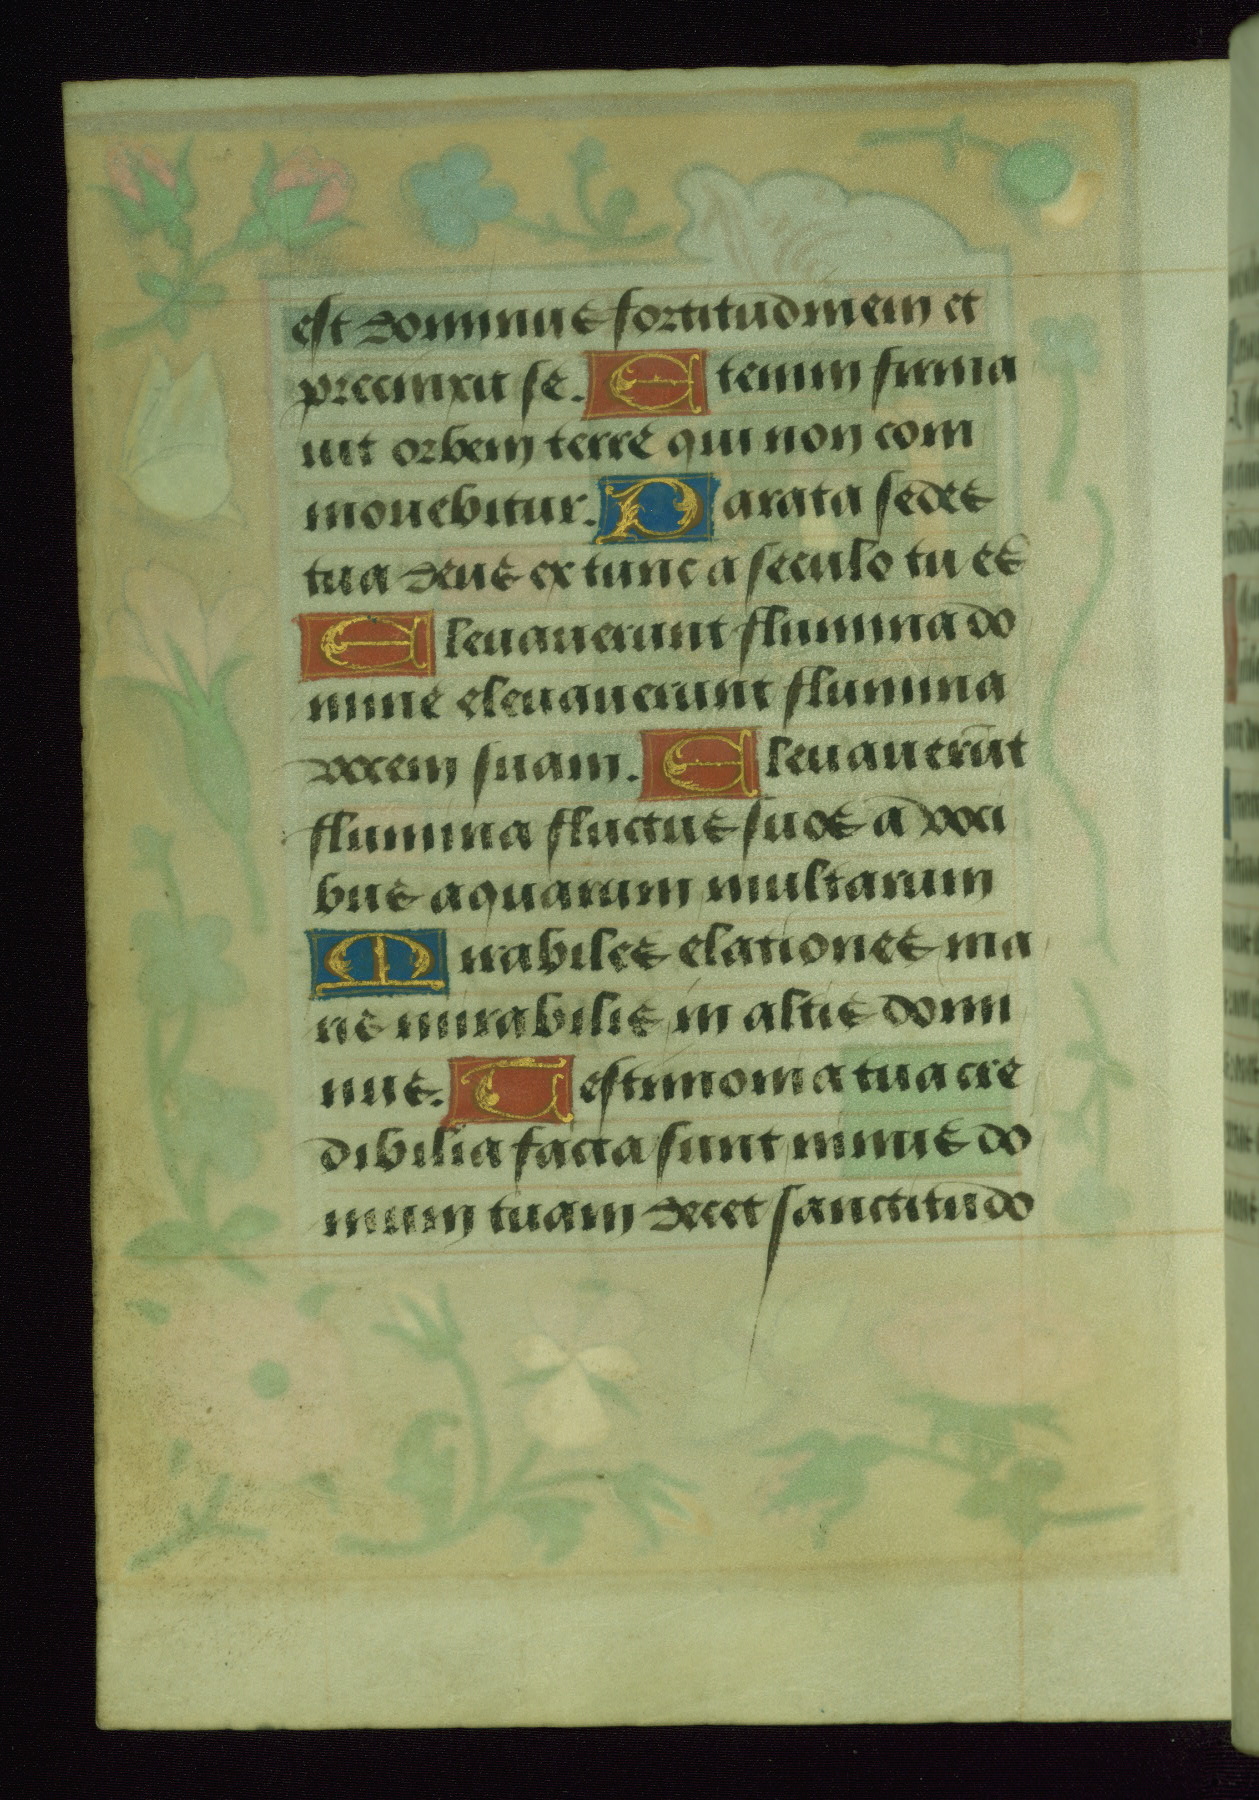 est dominus fortitudinem et
precinxit se. Etenim firma
uit orbem terre qui non com
mouebitur. Parata sedes
tua deus ex tunc a seculo tu es
Eleuauerunt flumina do
mine eleuauerunt flumina
vocem suam. Eleuauerūt
flumina fluctus suos a voci
bus aquarum multarum
Mirabiles elationes ma
ris mirabilis in altis domi
nus. Testimonia tua cre
dibilia facta sunt nimis do
mum tuam decet sanctitudo